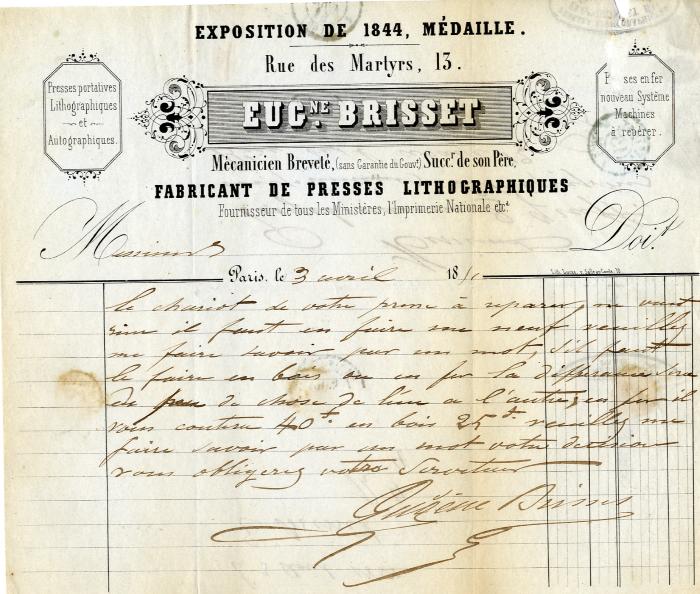 EXPOSITION DE 1844, MÉDAILLE.
Rue des Martyrs, 13.
Presses portatives
Lithographiques
et
Autographiques.
EUGNE. BRISSET
P sses en fer
nouveau Système
Machines
à repérer.
Mécanicien Breveté, (sans Garantie du Gouvt.) Succr. de son Père,
FABRICANT DE PRESSES LITHOGRAPHIQUES
Fournisseur de tous les Ministères, l'Imprimerie Nationale etca.
Messieurs
Doit.
Paris, le 3 avril 18
le chariot de votre presse à reparer, ne vaut
rien il faut en faire un neuf veuillez
me faire savoir par un mot, s'il faut
le faire en bois ou en fer la difference sera
de peu de chose de l'un a l'autre, en fer il
vous coutera 40f en bois 25f veuillez me
faire savoir par un mot votre decision
vous obligerez votre Serviteur
Eugène Brisset